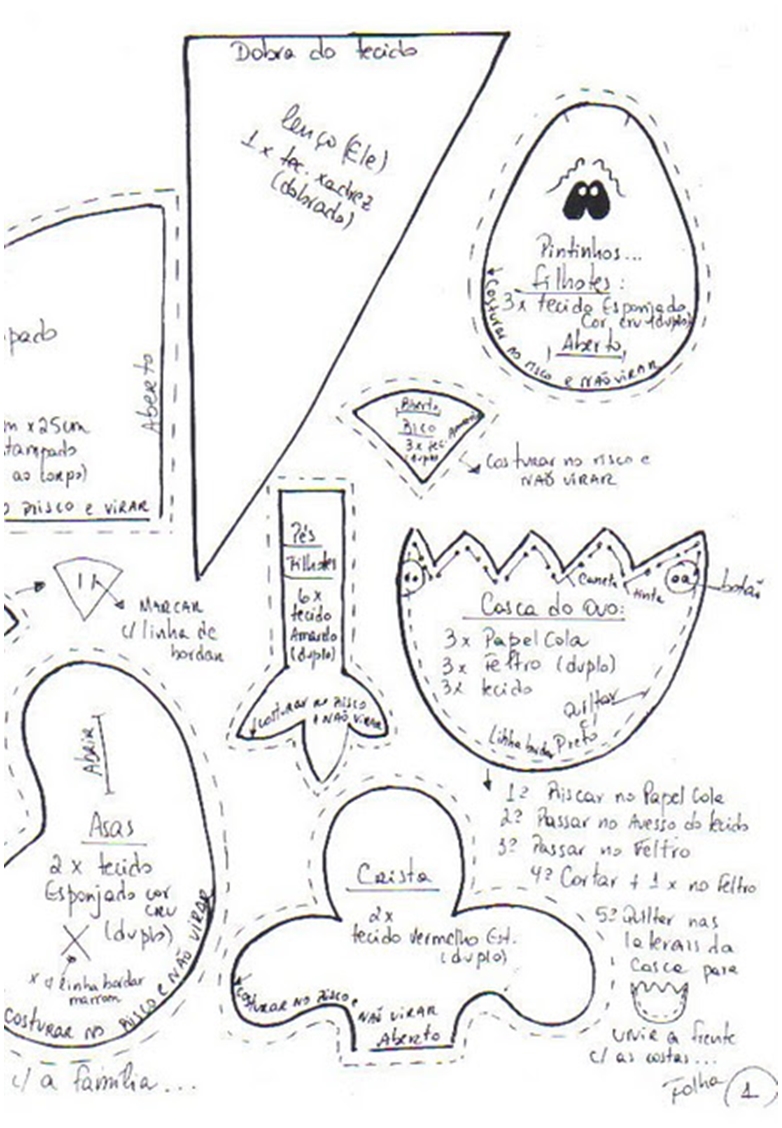 Dobra do tecido
lenço (Ele)
1 x tec. xadrez
(dobrado)
Pintinhos...
Filhotes:
3 x tecido Esponjado
Cor cru (duplo)
Aberto
Costurar no risco e NÃO VIRAR
Aberto
m x 25cm
ao corpo)
RISCO e VIRAR
Aberto
Bico
3 x tec. Amarelo
(duplo)
Costurar no risco e
NÃO VIRAR
MARCAR
c/ linha de
bordar
Pés
Filhotes
6 x
tecido
Amarelo
(duplo)
costurar no Risco
e NÃO VIRAR
Caneta tinta
botão
Casca do Ovo:
3 x Papel Cola
3 x Feltro (duplo)
3 x tecido
Quiltar
c/
Linha bordar Preto
1º Riscar no Papel Cola
2º Passar no Avesso do tecido
3º Passar no Feltro
4º Cortar + 1 x no Feltro
5º Quiltar nas
laterais da
Casca para
unir a frente
c/ as costas...
Abrir
Asas
2 x tecido
Esponjado cor
cru
(duplo)
linha bordar
marrom
costurar no Risco e NÃO VIRAR
Crista
2 x
tecido vermelho Est.
(duplo)
costurar no Risco e
NÃO VIRAR
Aberto
c/ a família...
Folha 1